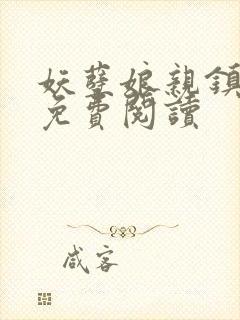 妖孽娘親鎮
免費閱讀
咸客